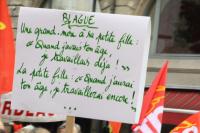 BLAGUE
Une grand-mère à sa petite fille :
« Quand j'avais ton âge,
je travaillais déjà ! »
La petite fille : « Quand j'aurai
ton âge, je travaillerai encore !